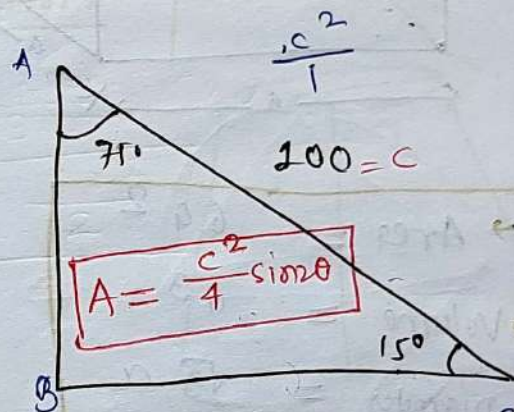 .c²/1
A
75°
100 = C
A = c²/4 sin2θ
15°
B